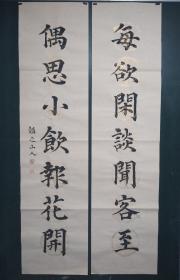 每欲閑談聞客至
偶思小飲報花開